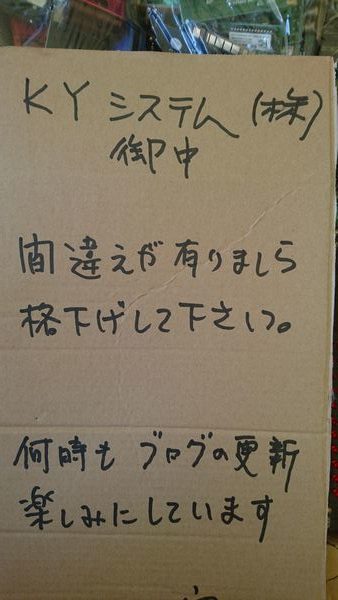 KY システム (株)
御中
間違えが有りましら
格下げして下さい。
何時も ブログの更新
楽しみにしています